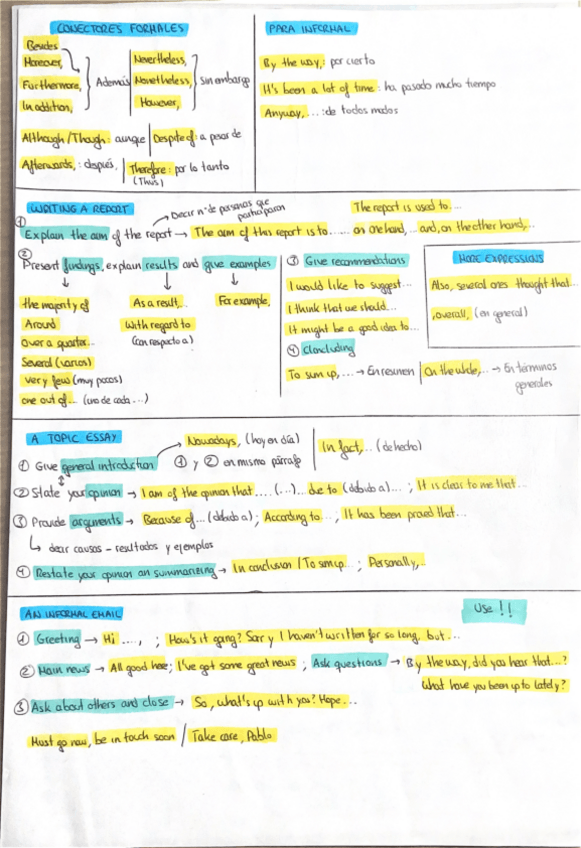 CONECTORES FORMALES
Besides
Moreover,
Furthermore,
In addition,
Además
Nevertheless,
Nonetheless,
However,
Sin embargo
Although/Though: aunque
Despite of: a pesar de
Afterwards,: después.
Therefore: por lo tanto
(Thus)
PARA INFORMAL
By the way,: por cierto
It's been a lot of time: ha pasado mucho tiempo
Anyway,...: de todos modos
WRITING A REPORT
→ Decir nº de personas que
participaron
① Explain the aim of the report → The aim of this report is to......
The report is used to....
on one hand,... and, on the other hand,...
② Present findings, explain results and give examples
the majority of
Around
Over a quarter...
Several (varios)
very few (muy pocos)
one out of... (uno de cada...)
As a result,..
With regard to
(con respecto a)
For example,
③ Give recommendations
I would like to suggest...
I think that we should...
It might be a good idea to...
④ Clncluding
To sum up,... → En resumen
On the whole,.. → En términos
generales
MORE EXPRESSIONS
Also, several ones thought that...
,overall, (en general)
A TOPIC ESSAY
Nowadays, (hoy en día)
In fact,... (de hecho)
① Give general introduction
① y ② en mismo párrafo
② State your opinion → I am of the opinion that....(...)... due to (debido a)...; It is clear to me that...
③ Provide arguments → Because of... (debido a); According to...; It has been proved that...
↳ decir causas - resultados y ejemplos
④ Restate your opinion an summarizing → In conclusion / To sum up...; Personally,..
AN INFORMAL EMAIL
Use !!
① Greeting → Hi ....,; How's it going? Sorry I haven't written for so long, but...
② Main news → All good here; I've got some great news; Ask questions → By the way, did you hear that...?
What have you been up to lately?
③ Ask about others and close → So, what's up with you? Hope...
Must go now, be in touch soon / Take care, Pablo